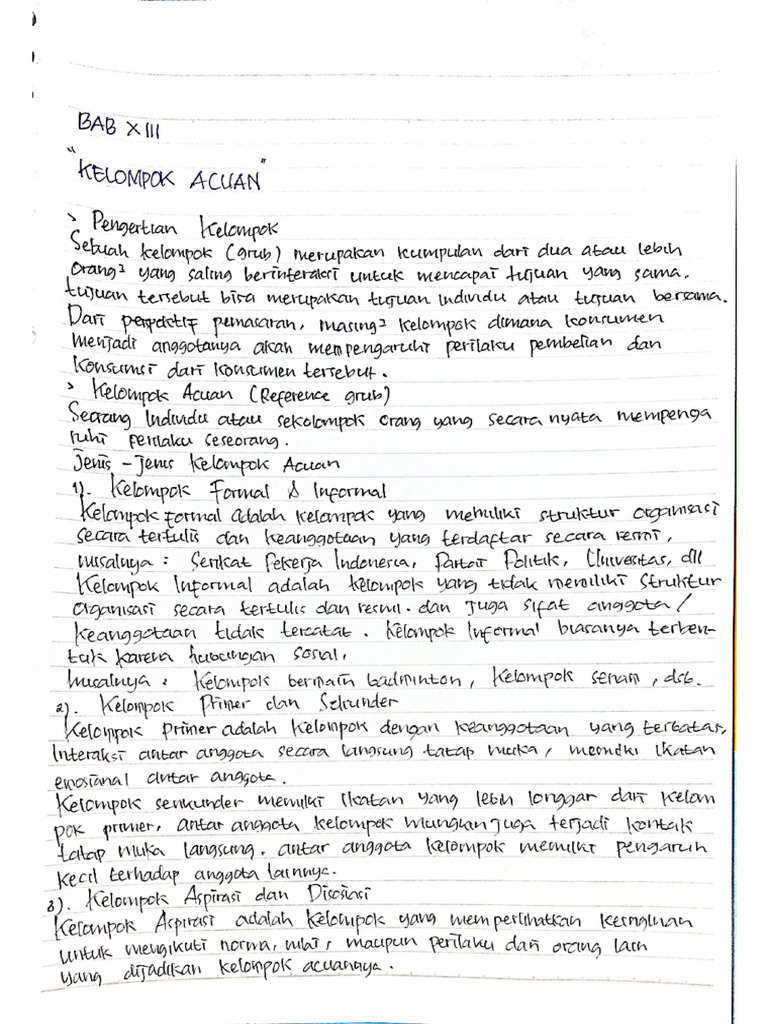 BAB XIII
"KELOMPOK ACUAN"
> Pengertian Kelompok
Sebuah kelompok (grub) merupakan kumpulan dari dua atau lebih
orang² yang saling berinteraksi untuk mencapai tujuan yang sama.
tujuan tersebut bisa merupakan tujuan individu atau tujuan bersama.
Dari perspektif pemasaran, masing² kelompok dimana konsumen
menjadi anggotanya akan mempengaruhi perilaku pembelian dan
konsumsi dari konsumen tersebut.
> Kelompok Acuan (Reference grub)
Seorang Individu atau sekolompok orang yang secara nyata mempenga
ruhi perilaku seseorang.
Jenis - Jenis Kelompok Acuan
1). Kelompok Formal & Informal
Kelompok formal adalah kelompok yang memiliki struktur organisasi
secara tertulis dan keanggotaan yang terdaftar secara resmi,
misalnya : Serikat Pekerja Indonesia, Partai Politik, Universitas, dll
Kelompok Informal adalah kelompok yang tidak memiliki struktur
organisasi secara tertulis dan resmi. dan juga sifat anggota/
keanggotaan tidak tercatat. Kelompok Informal biasanya terben-
tuk karena hubungan sosial,
misalnya : Kelompok bermain badminton, Kelompok senam, dsb.
2). Kelompok Primer dan Sekunder
Kelompok Primer adalah kelompok dengan keanggotaan yang terbatas,
Interaksi antar anggota secara langsung tatap muka, memiliki Ikatan
emosianal antar anggota.
Kelompok senkunder memiliki Ikatan yang lebih longgar dari kelom
pok primer, antar anggota kelompok mungkin juga terjadi kontak
tatap muka langsung. antar anggota kelompok memiliki pengaruh
kecil terhadap anggota lainnya.
3). Kelompok Aspirasi dan Disosiasi
Kelompok Aspirasi adalah kelompok yang memperlihatkan keinginan
untuk mengikuti norma, nilai, maupun perilaku dari orang lain
yang dijadikan kelompok acuannya.